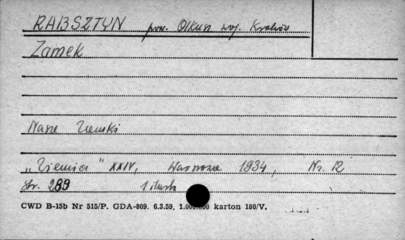 RABSZTYN pow. Olkusz woj. Kraków
Zamek
Ziemski
"Ziemia" XXIV, Warszawa 1934, Nr. 12
str. 289 1 ilustr.
CWD B-15b Nr 515/P. GDA-809. 6.3.59. karton 180/V.